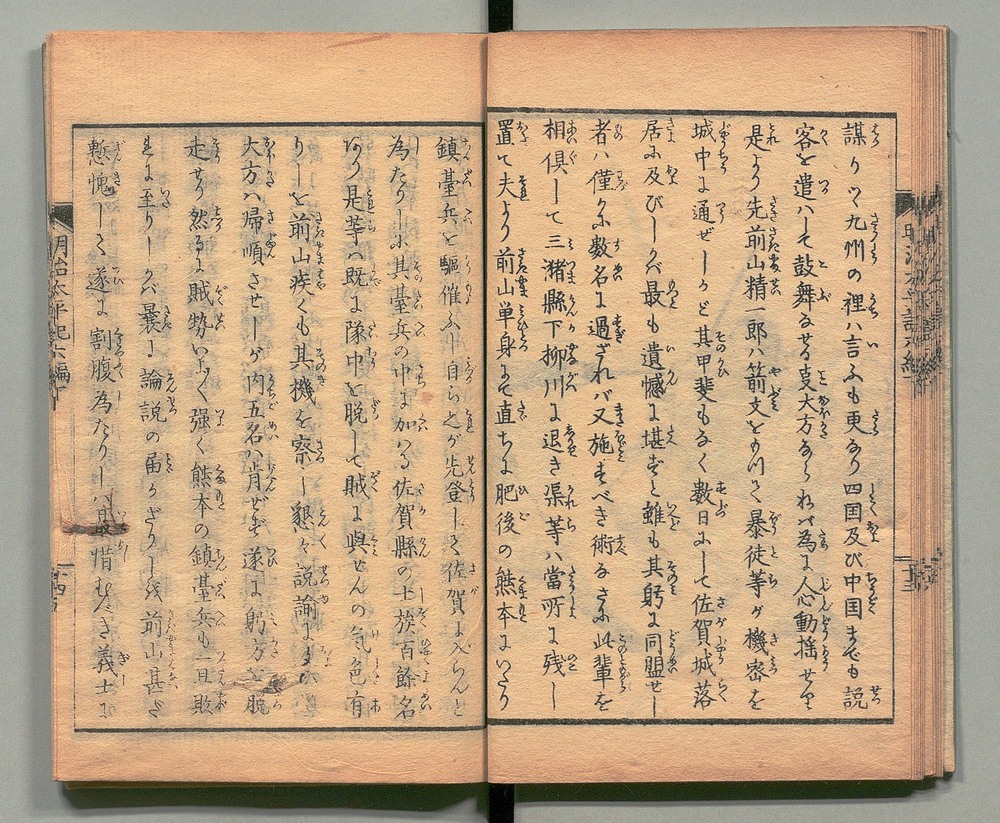 謀りつゝ九州の裡ハ言ふも更なり四国及び中国までも説
客を遣ハして鼓舞なせる支大方ならねバ為に人心動揺せり
是より先前山精一郎ハ箭文をもつて暴徒等が機密を
城中に通ぜしかど其甲斐もなく数日にして佐賀城落
居に及びしかバ最も遺憾に堪ずと雖も其躬に同盟せし
者ハ僅かに数名に過ざれバ又施すべき術なきに此輩を
相倶して三潴縣下柳川に退き渠等ハ當所に残し
置て夫より前山単身にて直ちに肥後の熊本にいたり
鎮臺兵を驅催ふし自ら之が先登して佐賀に入らんと
為たりしに其臺兵の中に加ハる佐賀縣の士族百餘名
あり是等ハ既に隊中を脱して賊に與せんの気色有
りしを前山疾くも其機を察し懇々説諭に
大方ハ帰順させしが内五名ハ肯ぜず遂に躬方を脱
走せり然るに賊勢いよく強く熊本の鎮臺兵も一旦敗
れに至りしかバ曩に論説の届かざりしを前山甚だ
慙愧して遂に割腹為たりしハ最惜むべき義士に
明治太平記六編